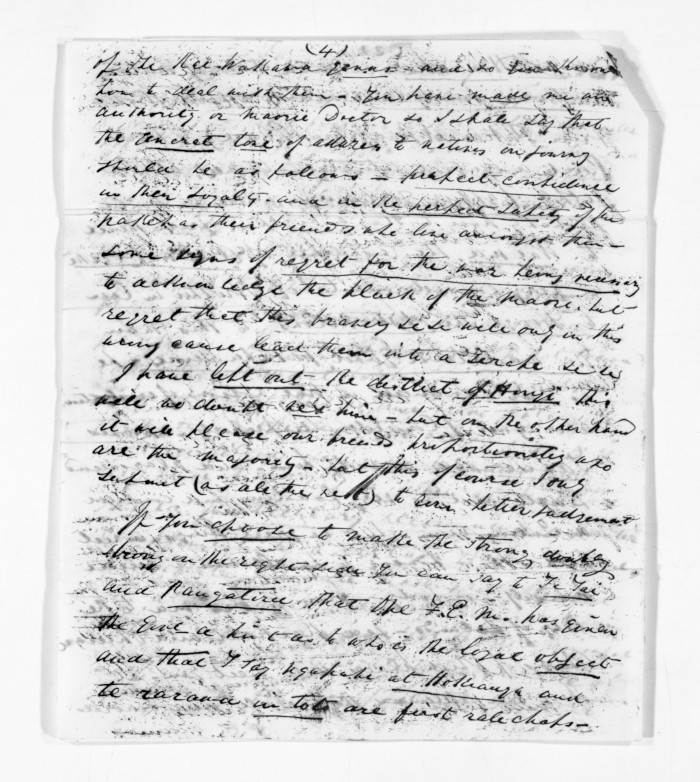 (4)
of the Wakana genus and so
how to deal with them – You have made me an
authority or Maorie Doctor so I shall say that
the tone of address to natives on
should be as follows – perfect confidence
in their loyalty – and in the perfect safety of the
pakehas their friends who live amongst them –
some signs of regret for the war being necessary
to acknowledge the pluck of the Maori, but
regret that this bravery &c &c will only in this
wrong cause lead them into a scrape &c &c
I have left out the district of Hongi this
will no doubt vex him – but on the other hand
it will please our friends proportionately who
are the majority – but this of course I only
submit (as all the rest) to your better judgement
If you choose to make the strong doubly
strong on the right side you can say to Te Tai
and Rangatira that the F.E.M. has given
the Govt a hint as to who is the loyal
and that I say ngapuhi at Hokianga and
te rarawa in toto are first rate chaps –